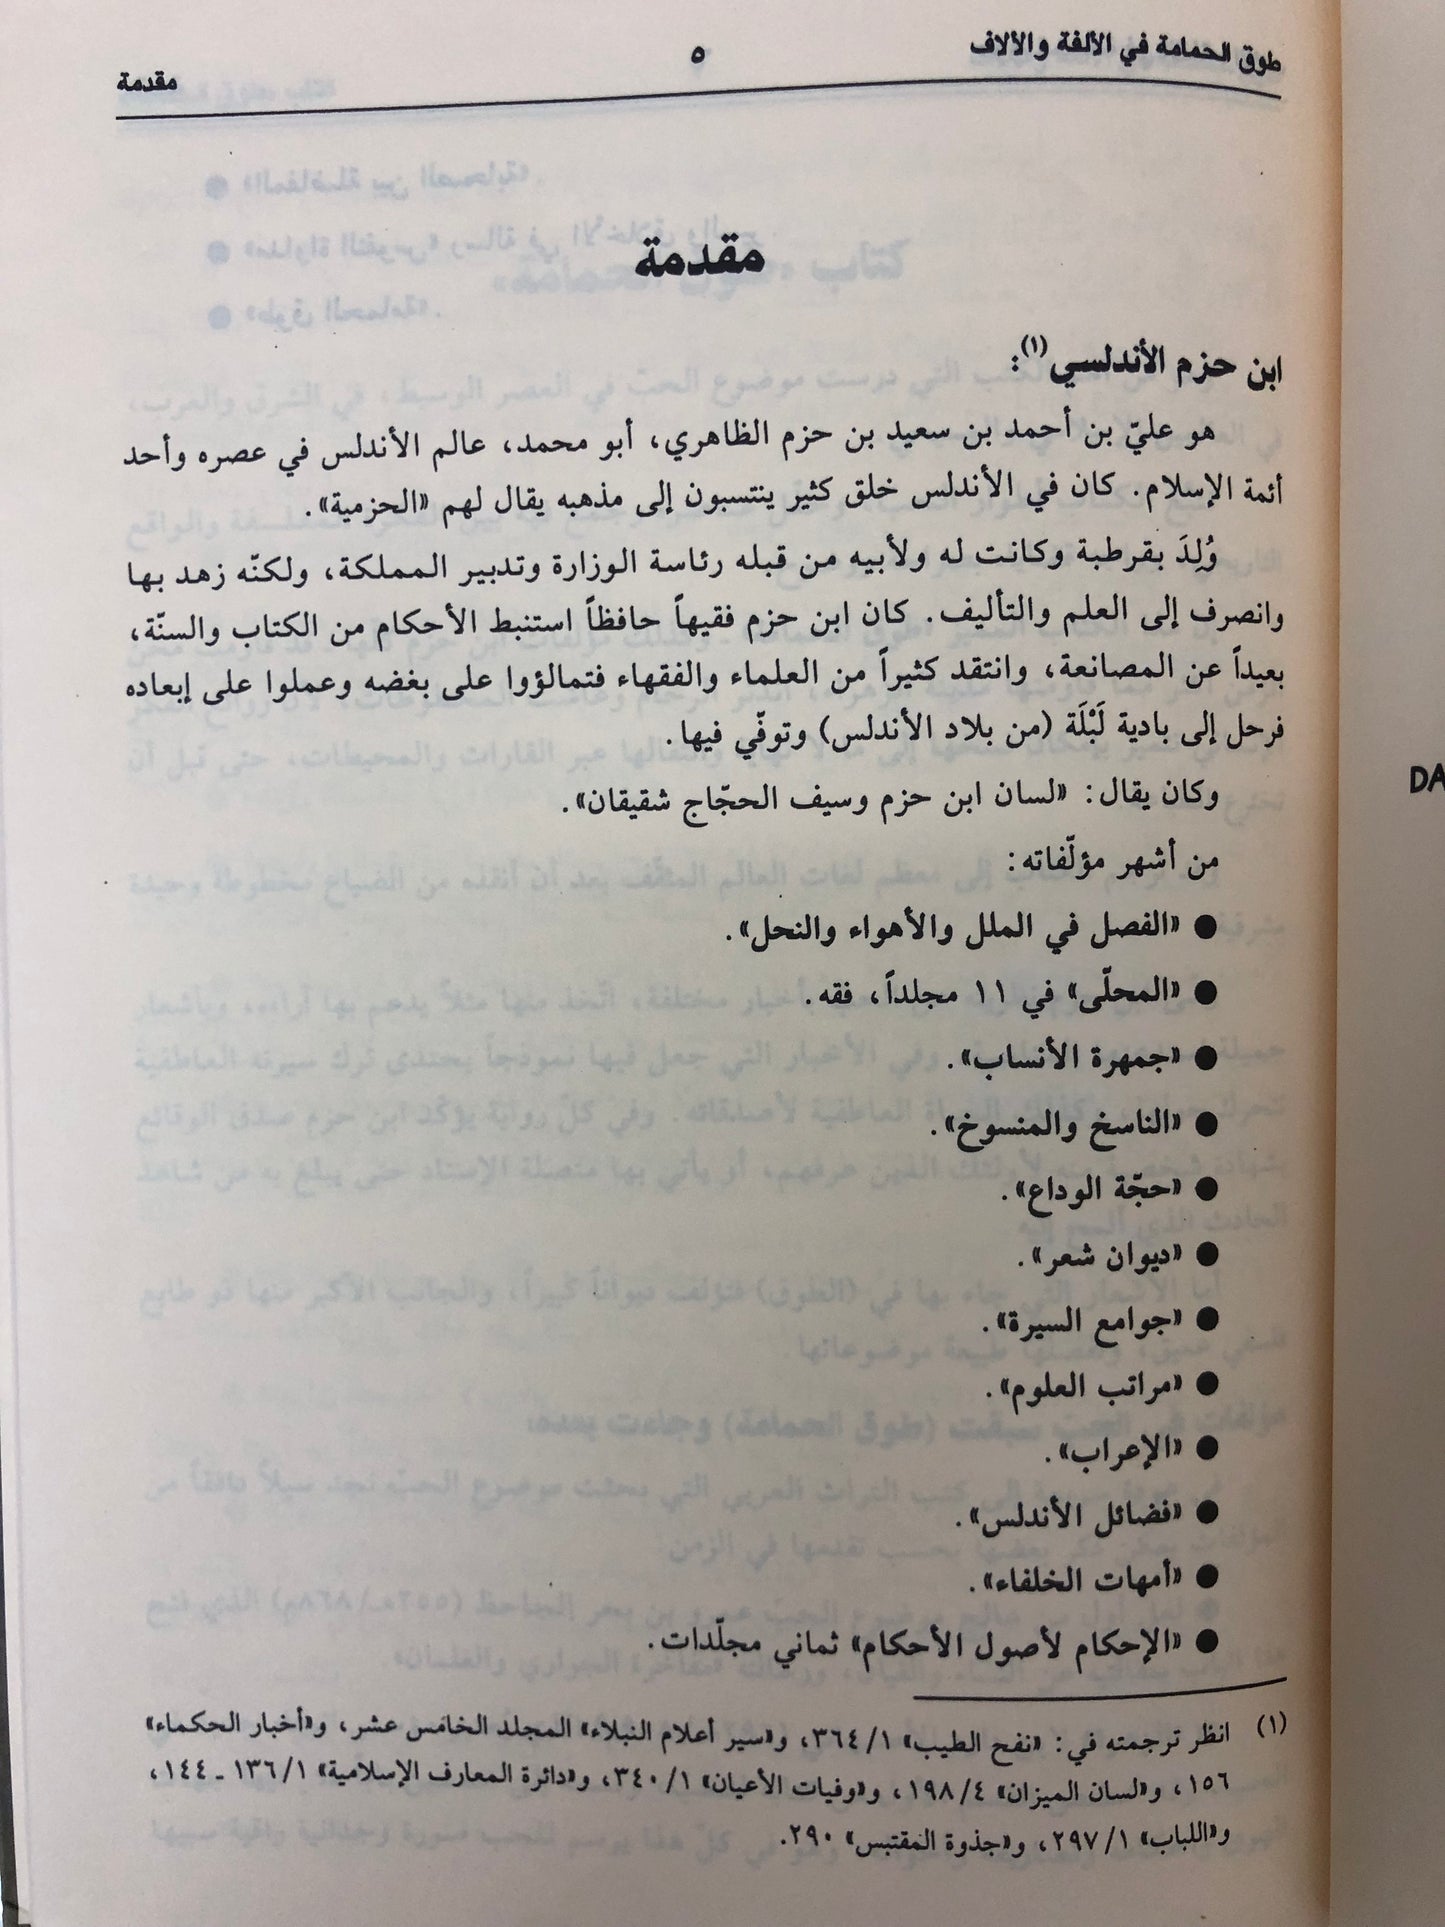 طوق الحمامة في الألفة والألاف
٥
مقدمة
مقدمة
ابن حزم الأندلسي(١):
هو عليّ بن أحمد بن سعيد بن حزم الظاهري، أبو محمد، عالم الأندلس في عصره وأحد
أئمة الإسلام. كان في الأندلس خلق كثير ينتسبون إلى مذهبه يقال لهم «الحزمية».
وُلِدَ بقرطبة وكانت له ولأبيه من قبله رئاسة الوزارة وتدبير المملكة، ولكنّه زهد بها
وانصرف إلى العلم والتأليف. كان ابن حزم فقيهاً حافظاً استنبط الأحكام من الكتاب والسنّة،
بعيداً عن المصانعة، وانتقد كثيراً من العلماء والفقهاء فتمالؤوا على بغضه وعملوا على إبعاده
فرحل إلى بادية لَبْلَة (من بلاد الأندلس) وتوفّي فيها.
وكان يقال: «لسان ابن حزم وسيف الحجّاج شقيقان».
من أشهر مؤلّفاته:
● «الفصل في الملل والأهواء والنحل».
● «المحلّى» في ١١ مجلداً، فقه.
● «جمهرة الأنساب».
● «الناسخ والمنسوخ».
● «حجّة الوداع».
● «ديوان شعر».
● «جوامع السيرة».
● «مراتب العلوم».
● «الإعراب».
● «فضائل الأندلس».
● «أمهات الخلفاء».
● «الإحكام لأصول الأحكام» ثماني مجلّدات.
(١) انظر ترجمته في: «نفح الطيب» ٣٦٤/١، و«سير أعلام النبلاء» المجلد الخامس عشر، و«أخبار الحكماء»
١٥٦، و«لسان الميزان» ١٩٨/٤، و«وفيات الأعيان» ٣٤٠/١، و«دائرة المعارف الإسلامية» ١٣٦/١ ـ ١٤٤،
و«اللباب» ٢٩٧/١، و«جذوة المقتبس» ٢٩٠.
DA